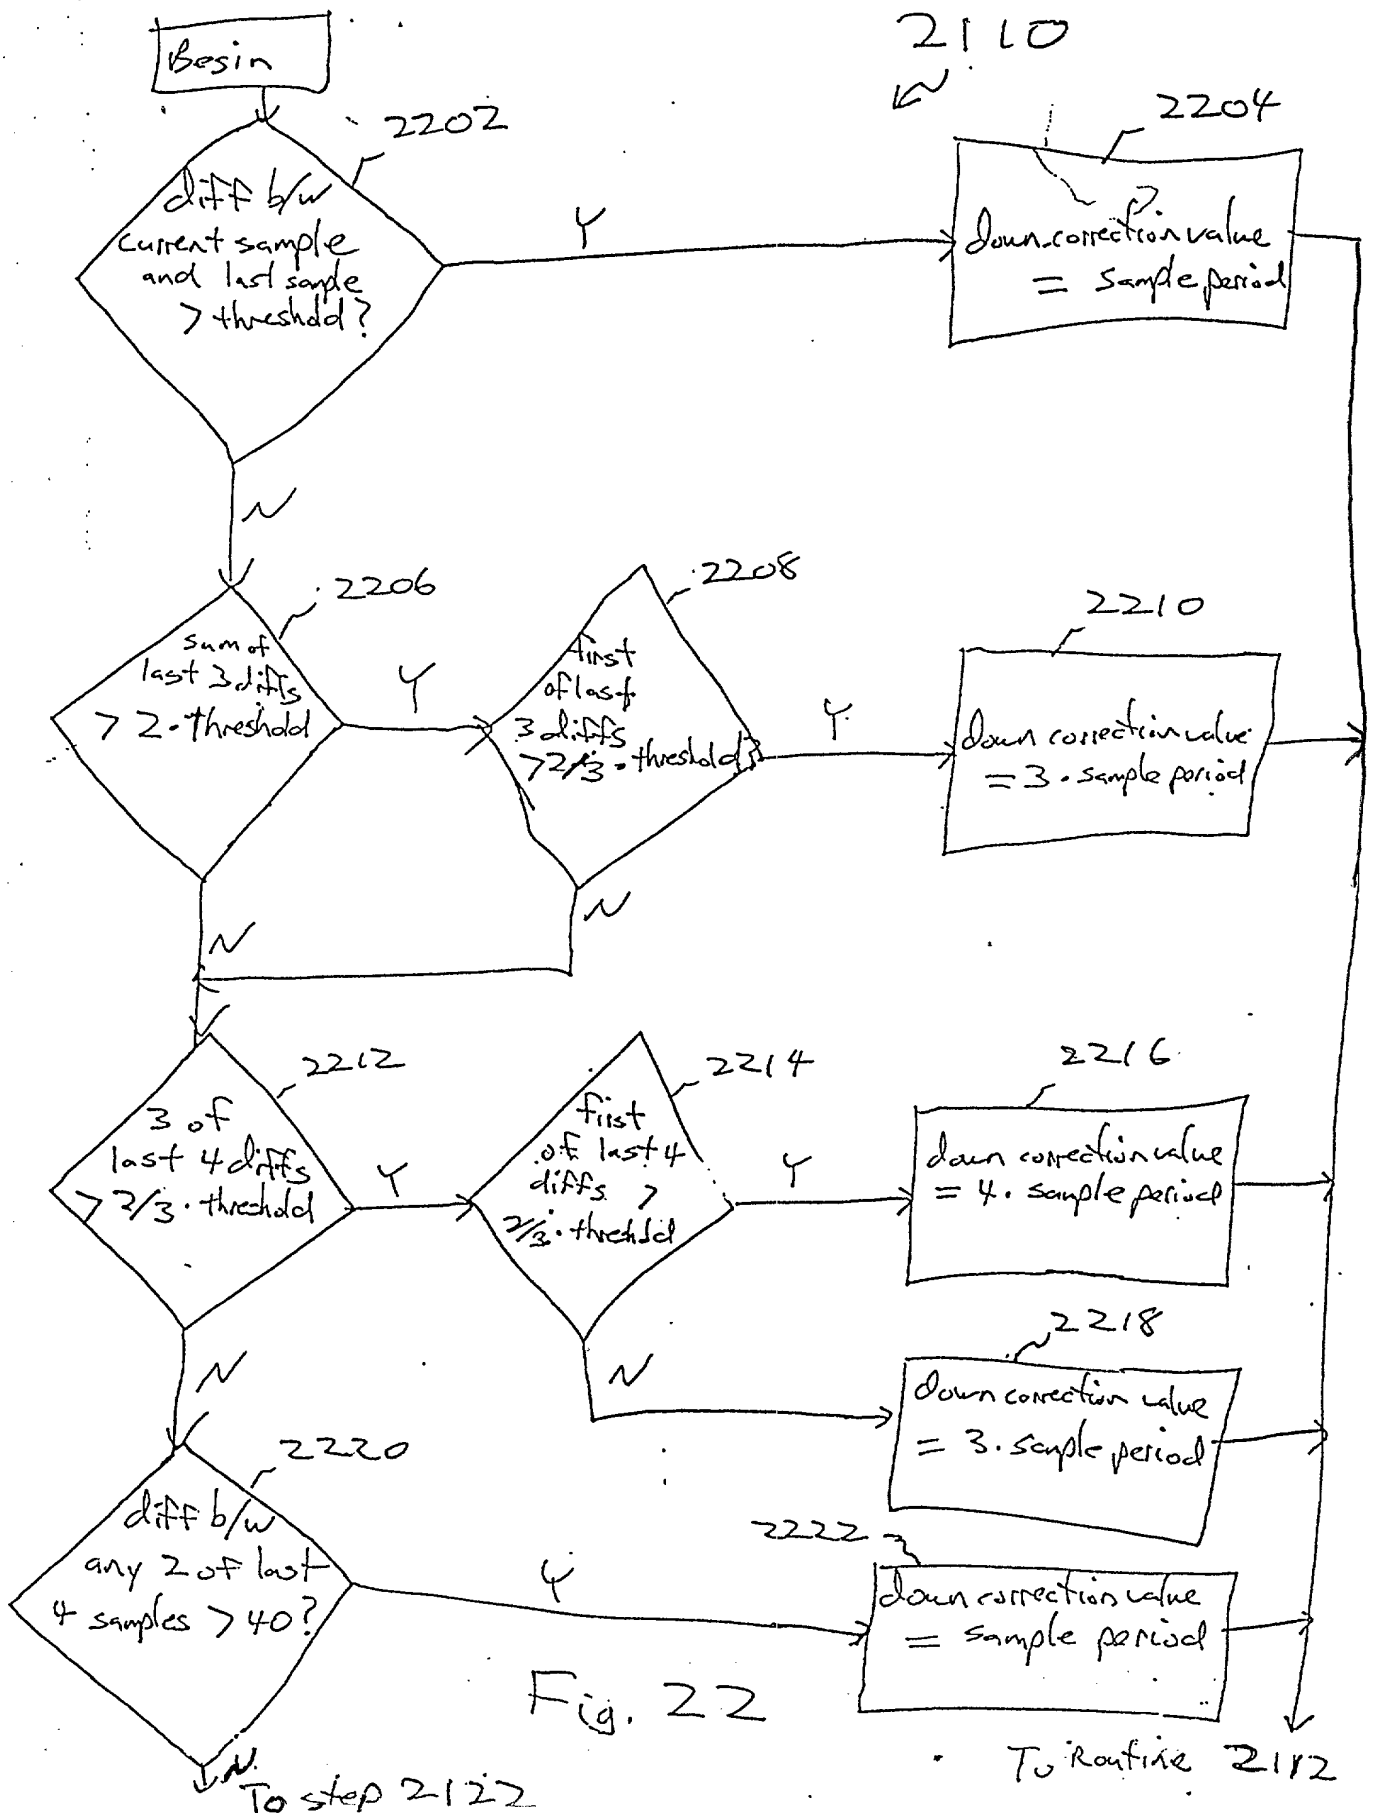 Begin
2110
2202
2204
diff b/w
current sample
and last sample
> threshold?
Y
down correction value
= sample period
N
2206
2208
2210
sum of
last 3 diffs
> 2 · threshold
Y
first
of last
3 diffs
> 2/3 · threshold
Y
down correction value
= 3 · sample period
N
N
2212
2214
2216
3 of
last 4 diffs
> 2/3 · threshold
Y
first
of last 4
diffs >
2/3 · threshold
Y
down correction value
= 4 · sample period
2218
N
N
down correction value
= 3 · sample period
2220
diff b/w
any 2 of last
4 samples > 40?
Y
2222
down correction value
= sample period
Fig. 22
N
To step 2122
To Routine 2112